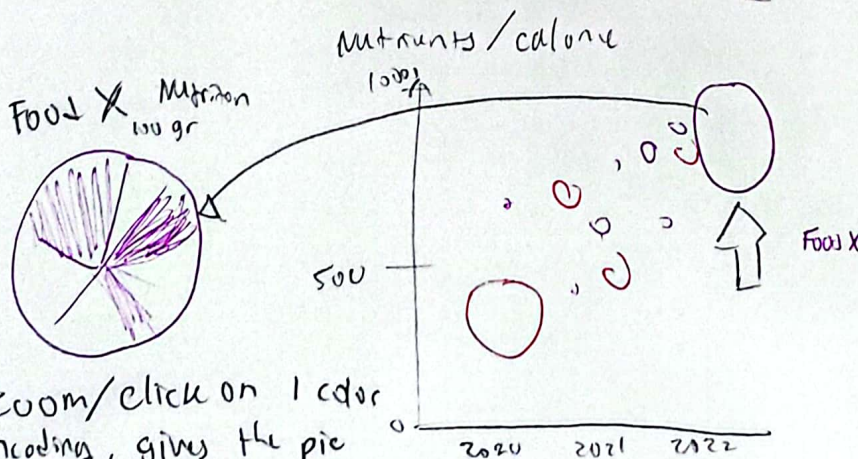 Nutrients/calorie
Food X Nutrition
100 gr
1000
500
0
2020 2021 2022
Food X
zoom/click on 1 color
encoding, gives the pie